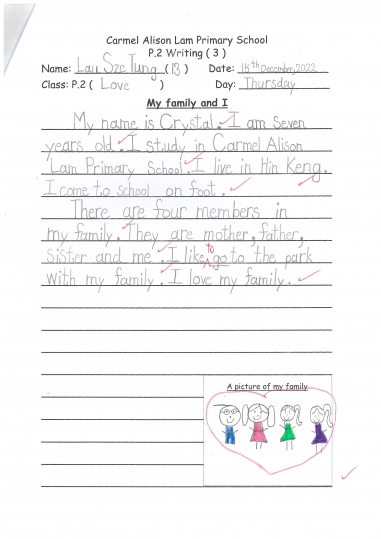 Carmel Alison Lam Primary School
P.2 Writing ( 3 )
Name: Lau Sze Tung ( 13 ) Date: 15th December, 2022
Class: P.2 ( Love ) Day: Thursday
My family and I
My name is Crystal. I am seven
years old. I study in Carmel Alison
Lam Primary School. I live in Hin Keng.
I come to school on foot.
There are four members in
my family. They are mother, father,
sister and me. I like to go to the park
with my family. I love my family.
A picture of my family